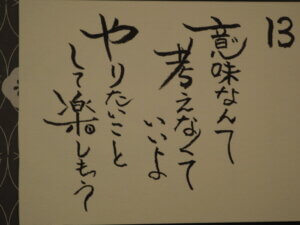 13
意味なんて
考えなくて
いいよ
やりたいこと
して楽しもう